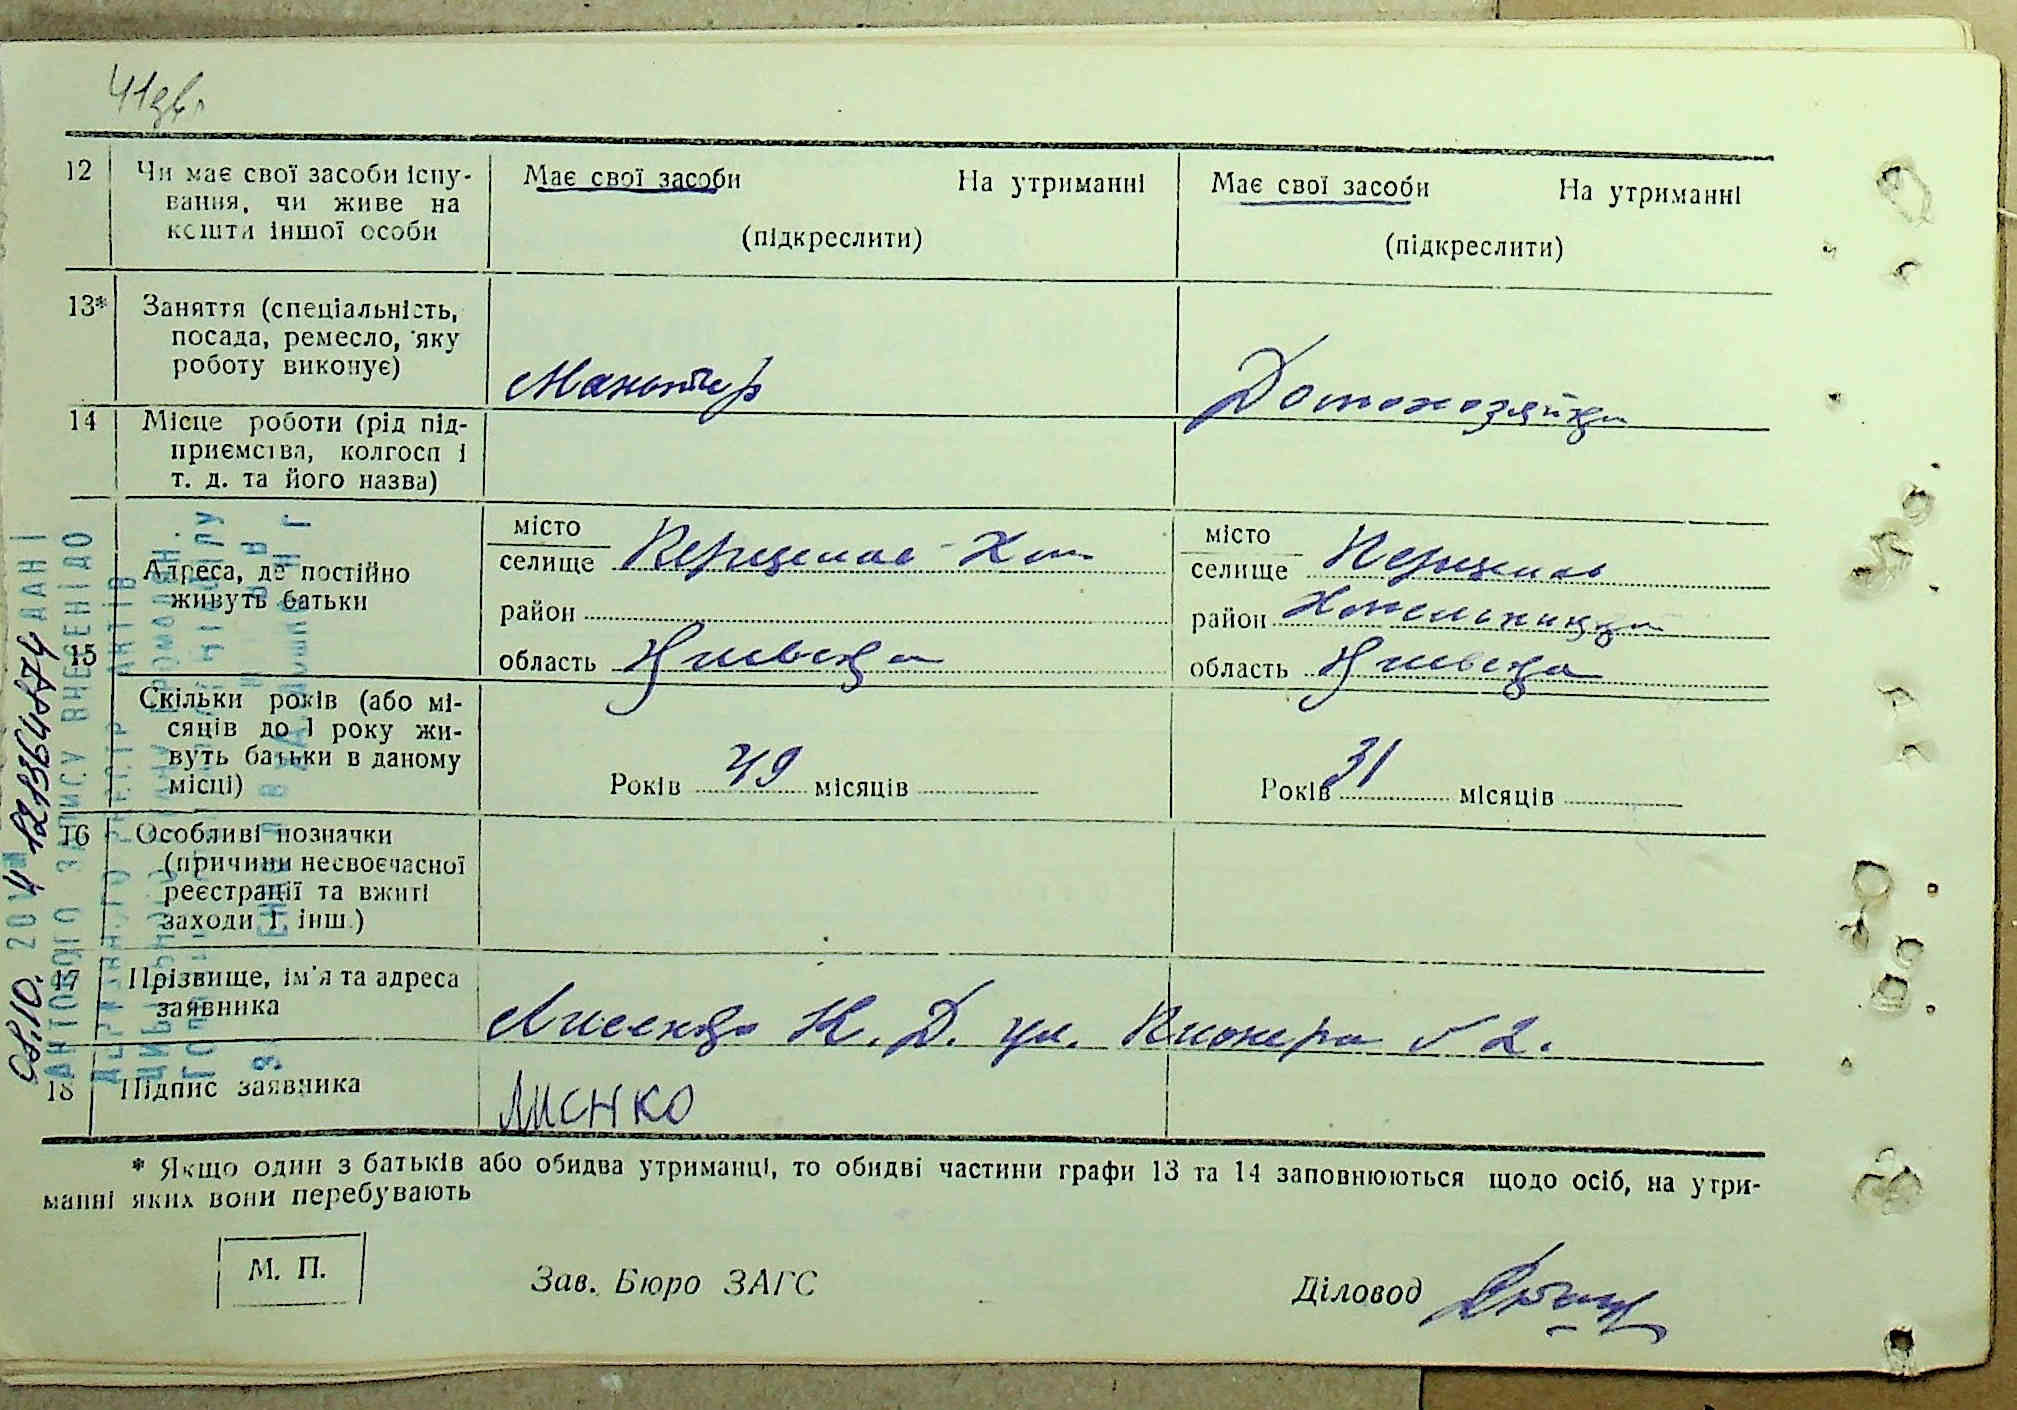 41зв.
12
Чи має свої засоби існу-
вання, чи живе на
кошти іншої особи
Має свої засоби На утриманні
(підкреслити)
Має свої засоби На утриманні
(підкреслити)
13*
Заняття (спеціальність,
посада, ремесло, яку
роботу виконує)
Домохозяйка
14
Місце роботи (рід під-
приємства, колгосп і
т. д. та його назва)
15
Адреса, де постійно
живуть батьки
місто
селище
район
область Киевска
місто
селище
район
область Киевска
Скільки років (або мі-
сяців до 1 року жи-
вуть батьки в даному
місці)
Років 49 місяців
Років 31 місяців
16
Особливі позначки
(причини несвоєчасної
реєстрації та вжиті
заходи і інш.)
17
Прізвище, ім'я та адреса
заявника
Лисенко Н. Д. ул. Пионера № 2.
18
Підпис заявника
* Якщо один з батьків або обидва утриманці, то обидві частини графи 13 та 14 заповнюються щодо осіб, на утри-
манні яких вони перебувають
М. П.
Зав. Бюро ЗАГС
Діловод